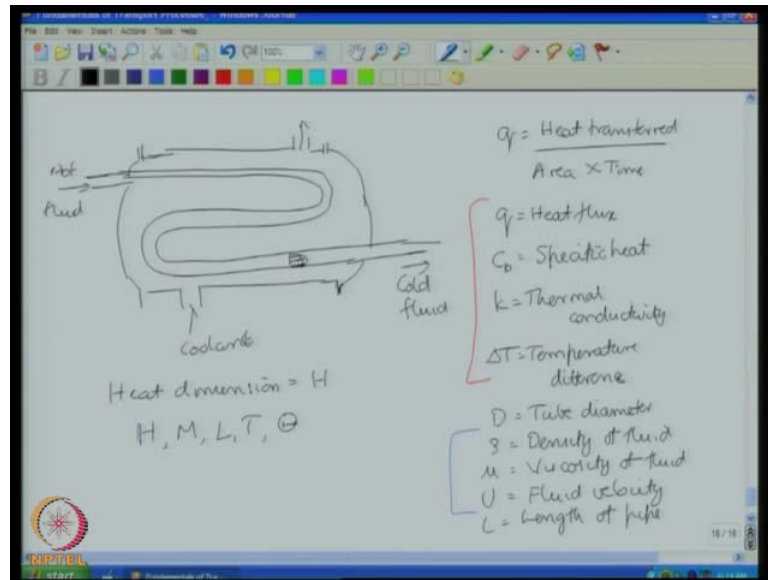 Fundamentals of Transport Processes - Windows Journal
File Edit View Insert Actions Tools Help
100%
B I
Hot
fluid
Cold
fluid
Coolant
Heat dimension = H
H, M, L, T, Θ
q = Heat transferred
Area X Time
q = Heat flux
Cp = Specific heat
k = Thermal
conductivity
ΔT = Temperature
difference
D = Tube diameter
ρ = Density of fluid
μ = Viscosity of fluid
U = Fluid velocity
L = Length of pipe
16 / 16
NPTEL
start
Fundamentals of Tra...